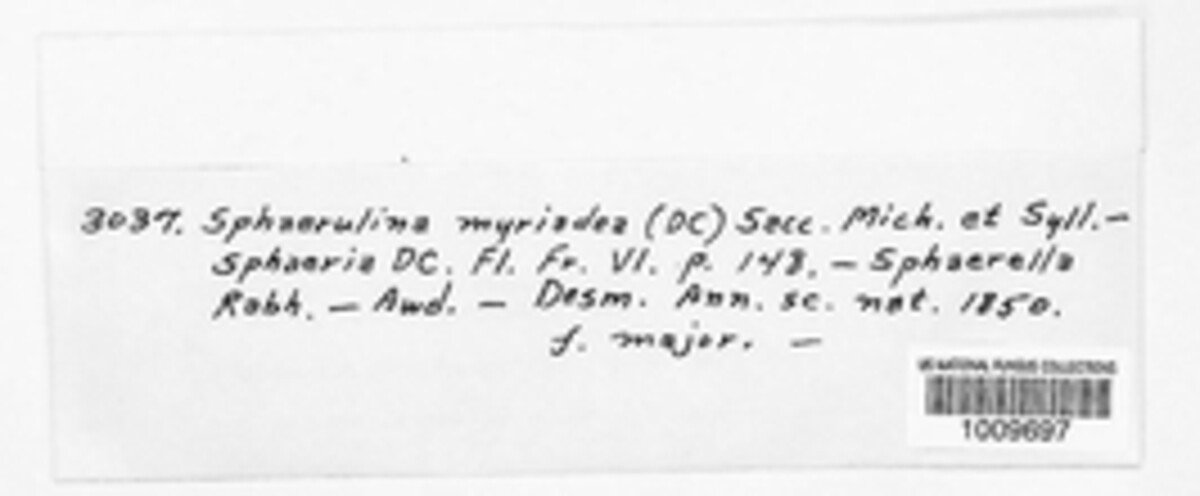 3037. Sphaerulina myriadea (DC) Sacc. Mich. et Syll.—
Sphaeria DC. Fl. Fr. VI. p. 148. — Sphaerella
Rabh. — Awd. — Desm. Ann. sc. nat. 1850.
f. major. —
US NATIONAL FUNGUS COLLECTIONS
1009697